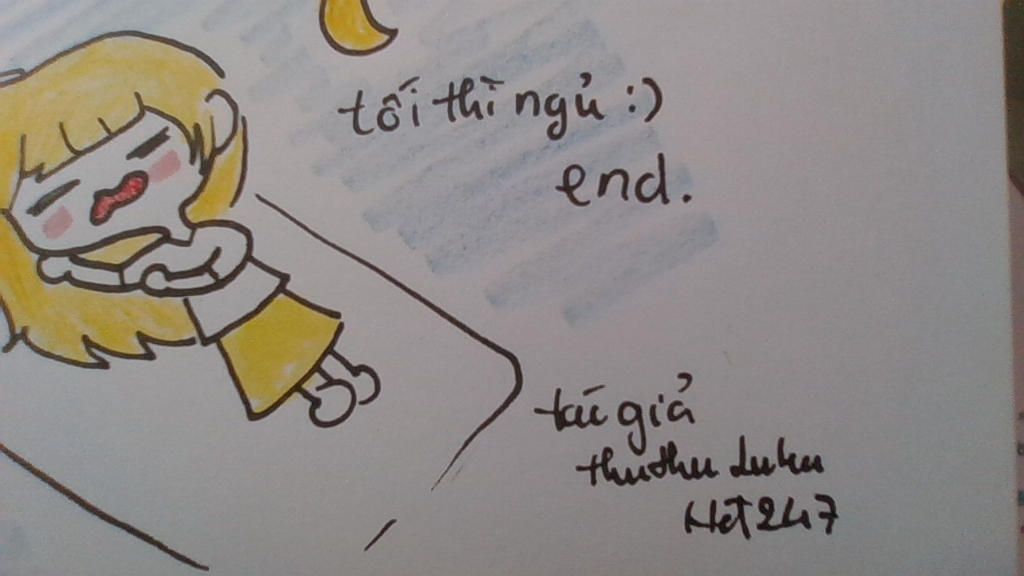 tối thì ngủ :)
end.
tác giả
thuthu luku
Hct247